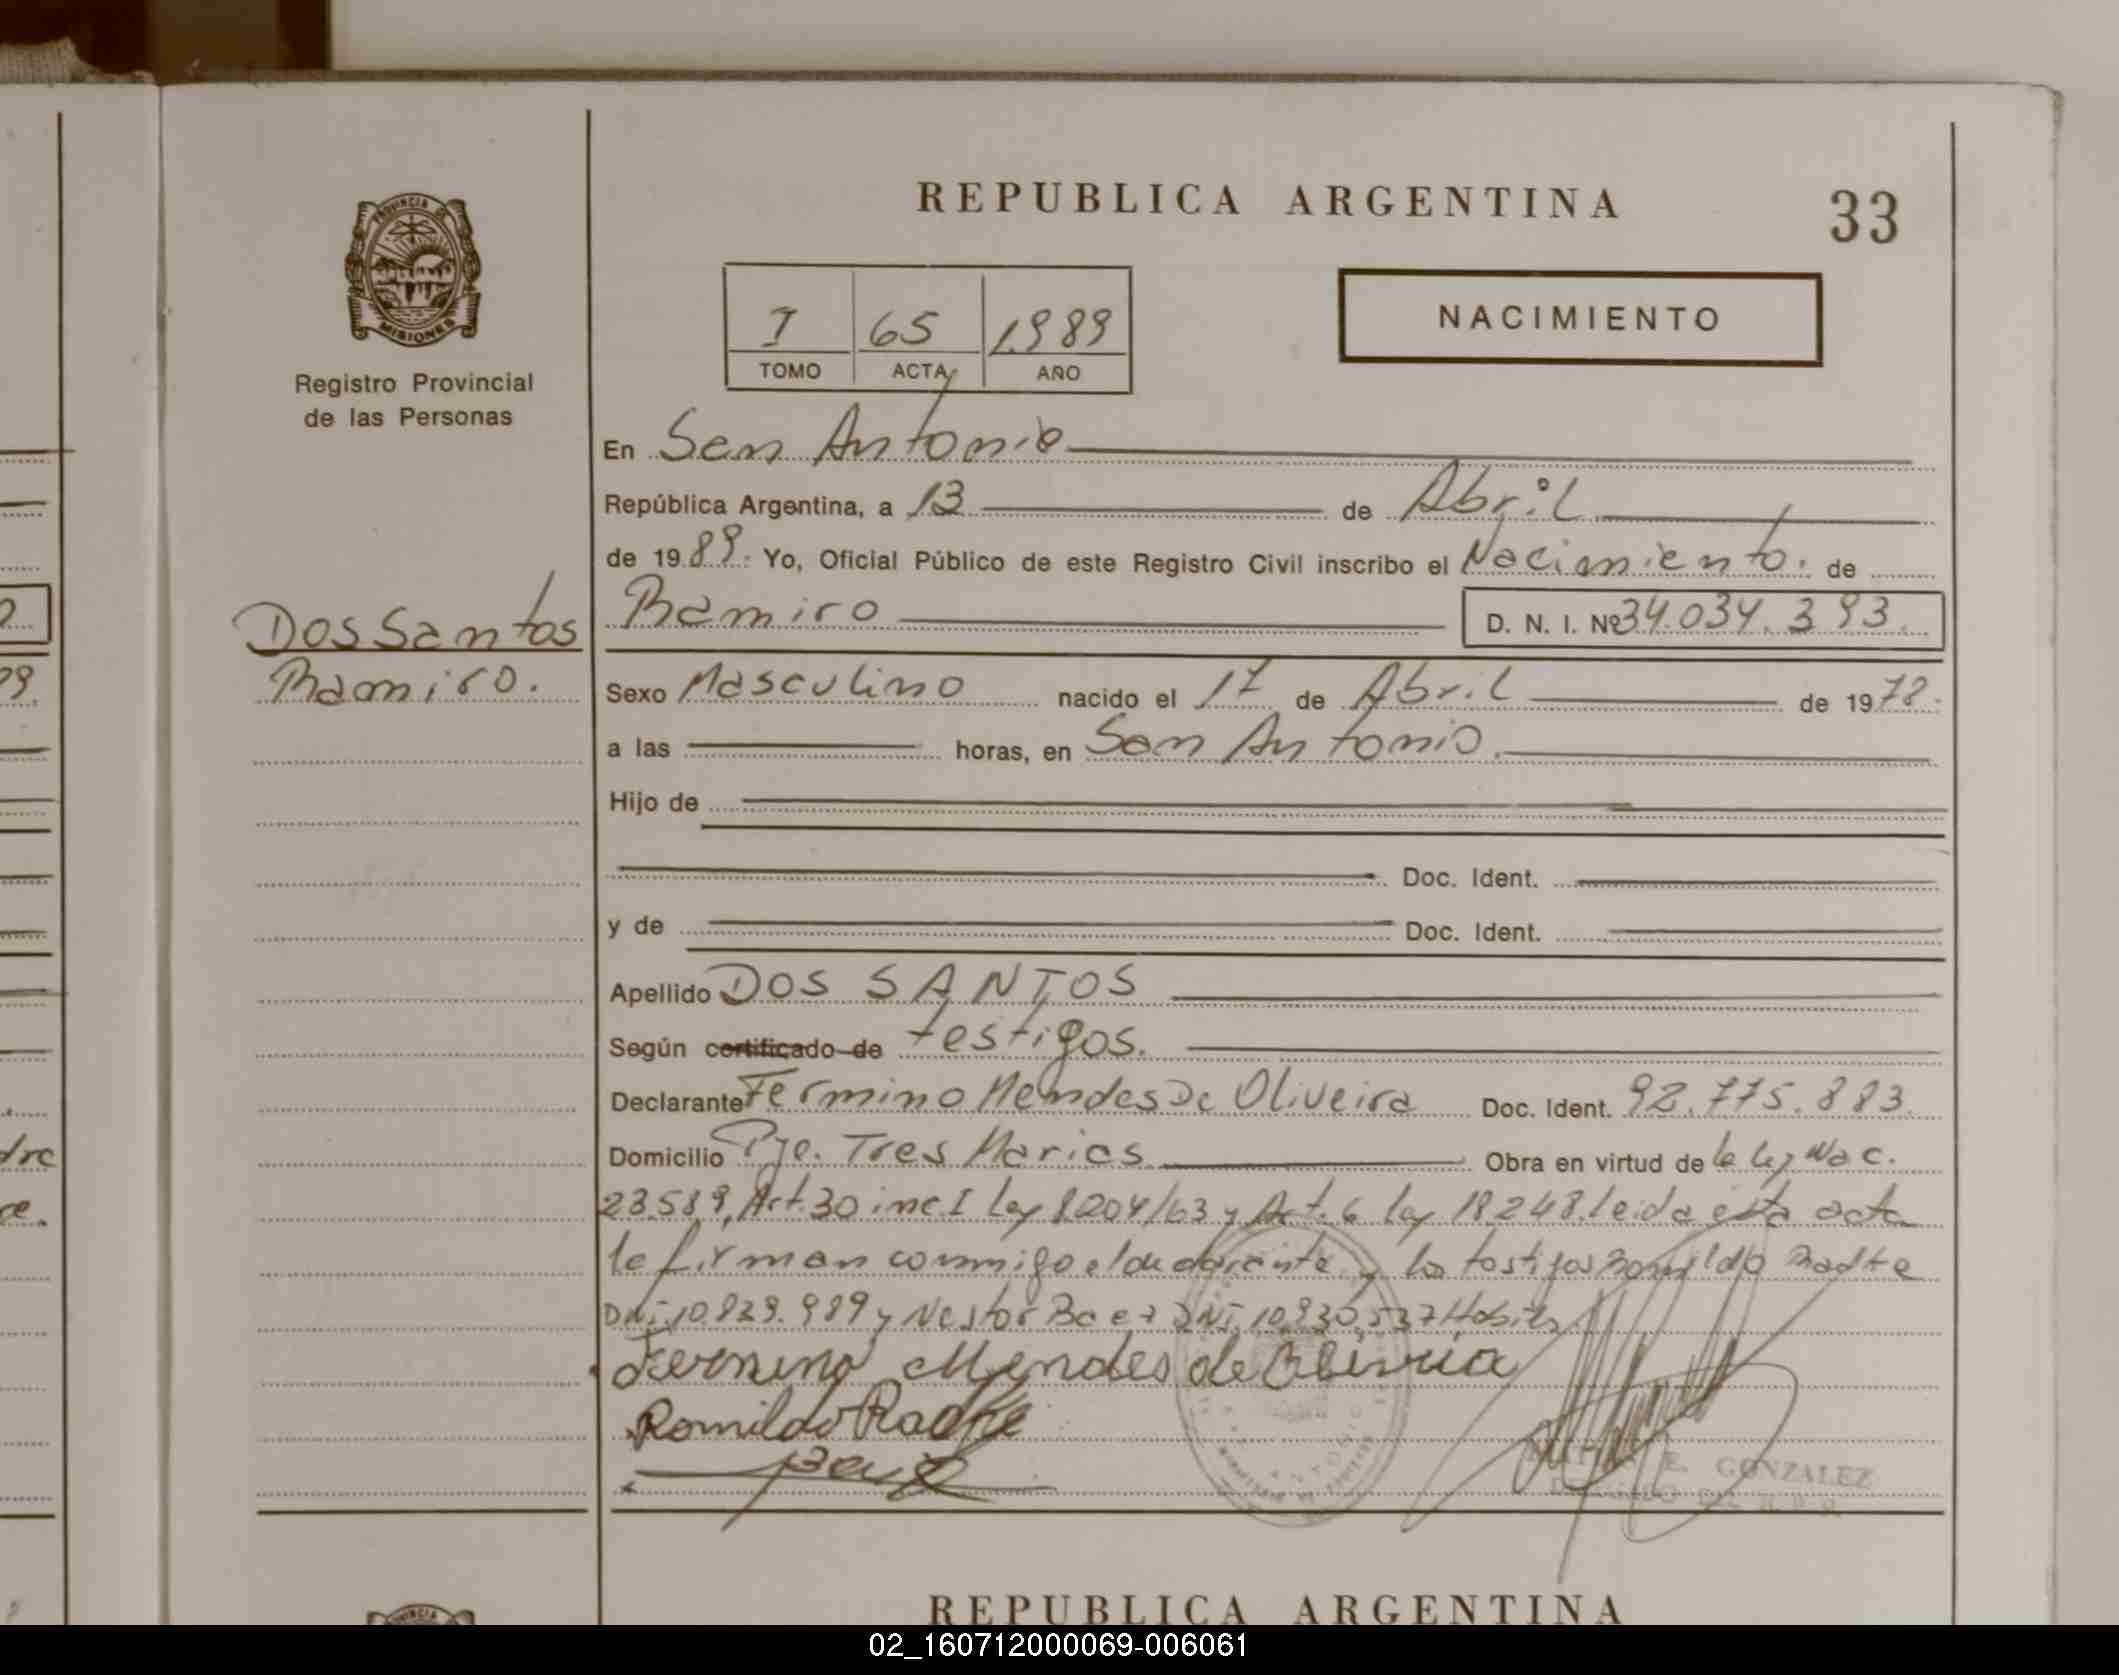 REPUBLICA ARGENTINA
33
PROVINCIA DE
MISIONES
Registro Provincial
de las Personas
I 65 1989
TOMO ACTA AÑO
NACIMIENTO
En San Antonio
República Argentina, a 13 de Abril
de 1989. Yo, Oficial Público de este Registro Civil inscribo el Nacimiento. de
Dos Santos
Ramiro.
Ramiro D. N. I. Nº 34.034.393.
Sexo Masculino nacido el 17 de Abril de 1978.
a las horas, en San Antonio.
Hijo de
Doc. Ident.
y de Doc. Ident.
Apellido DOS SANTOS
Según certificado de testigos.
Declarante Fermino Mendes De Oliveira Doc. Ident. 92.775.883.
Domicilio Pje. Tres Marias Obra en virtud de la ley Nac.
23.589, Art. 30 inc. I Ley 8204/63 y Art. 6 ley 18.248. leida esta acta
la firman conmigo el declarante y los testigos Romildo Radke
DNI. 10.829.989 y Nestor Baez DNI. 10.930.537 Habiles
Fermino Mendes de Oliveira
Romildo Radke
Baez
E. GONZALEZ
REPUBLICA ARGENTINA
02_160712000069-006061